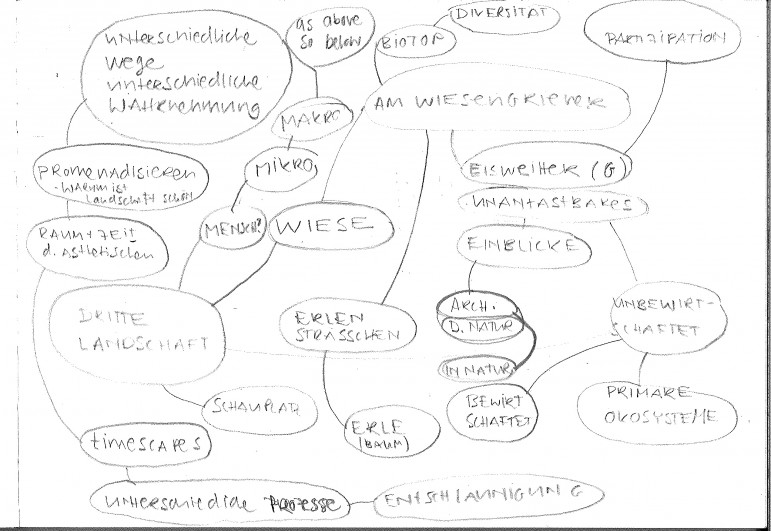 UNTERSCHIEDLICHE
WEGE
UNTERSCHIEDLICHE
WAHRNEHMUNG
as above
so below
BIOTOP
DIVERSITÄT
PARTIZIPATION
AM WIESENGRIENER
MAKRO
MIKRO
MENSCH?
WIESE
PROMENADISIEREN
- WARUM IST
LANDSCHAFT SCHÖN
RAUM + ZEIT
d. ÄSTHETISCHEN
EISWEIHER (G)
UNANTASTBARES
EINBLICKE
ARCH.
D. NATUR
IN NATUR
UNBEWIRT-
SCHAFTET
BEWIRT
SCHAFTET
PRIMÄRE
ÖKOSYSTEME
DRITTE
LANDSCHAFT
ERLEN
STRÄSSCHEN
SCHAUPLATZ
ERLE
(BAUM)
timescapes
UNTERSCHIEDLICHE PROZESSE
ENTSCHLEUNIGUNG